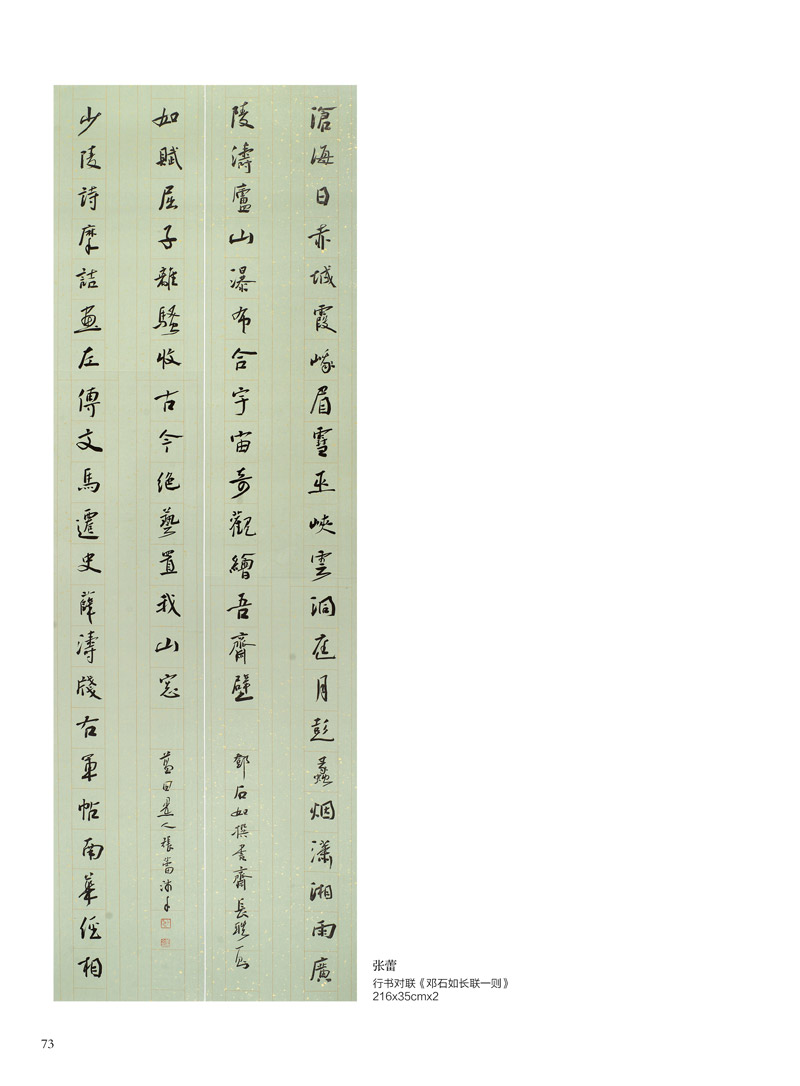 滄海日赤城霞峨眉雪巫峽雲洞庭月彭蠡烟瀟湘雨廣
陵濤廬山瀑布合宇宙奇觀繪吾齋壁
鄧石如撰書齋長聯一則
少陵詩摩詰畫左傳文馬遷史薛濤牋右軍帖南華經相
如賦屈子離騷收古今绝藝置我山窓
藍田人張蕾沐手
张蕾
行书对联《邓石如长联一则》
216x35cmx2
73